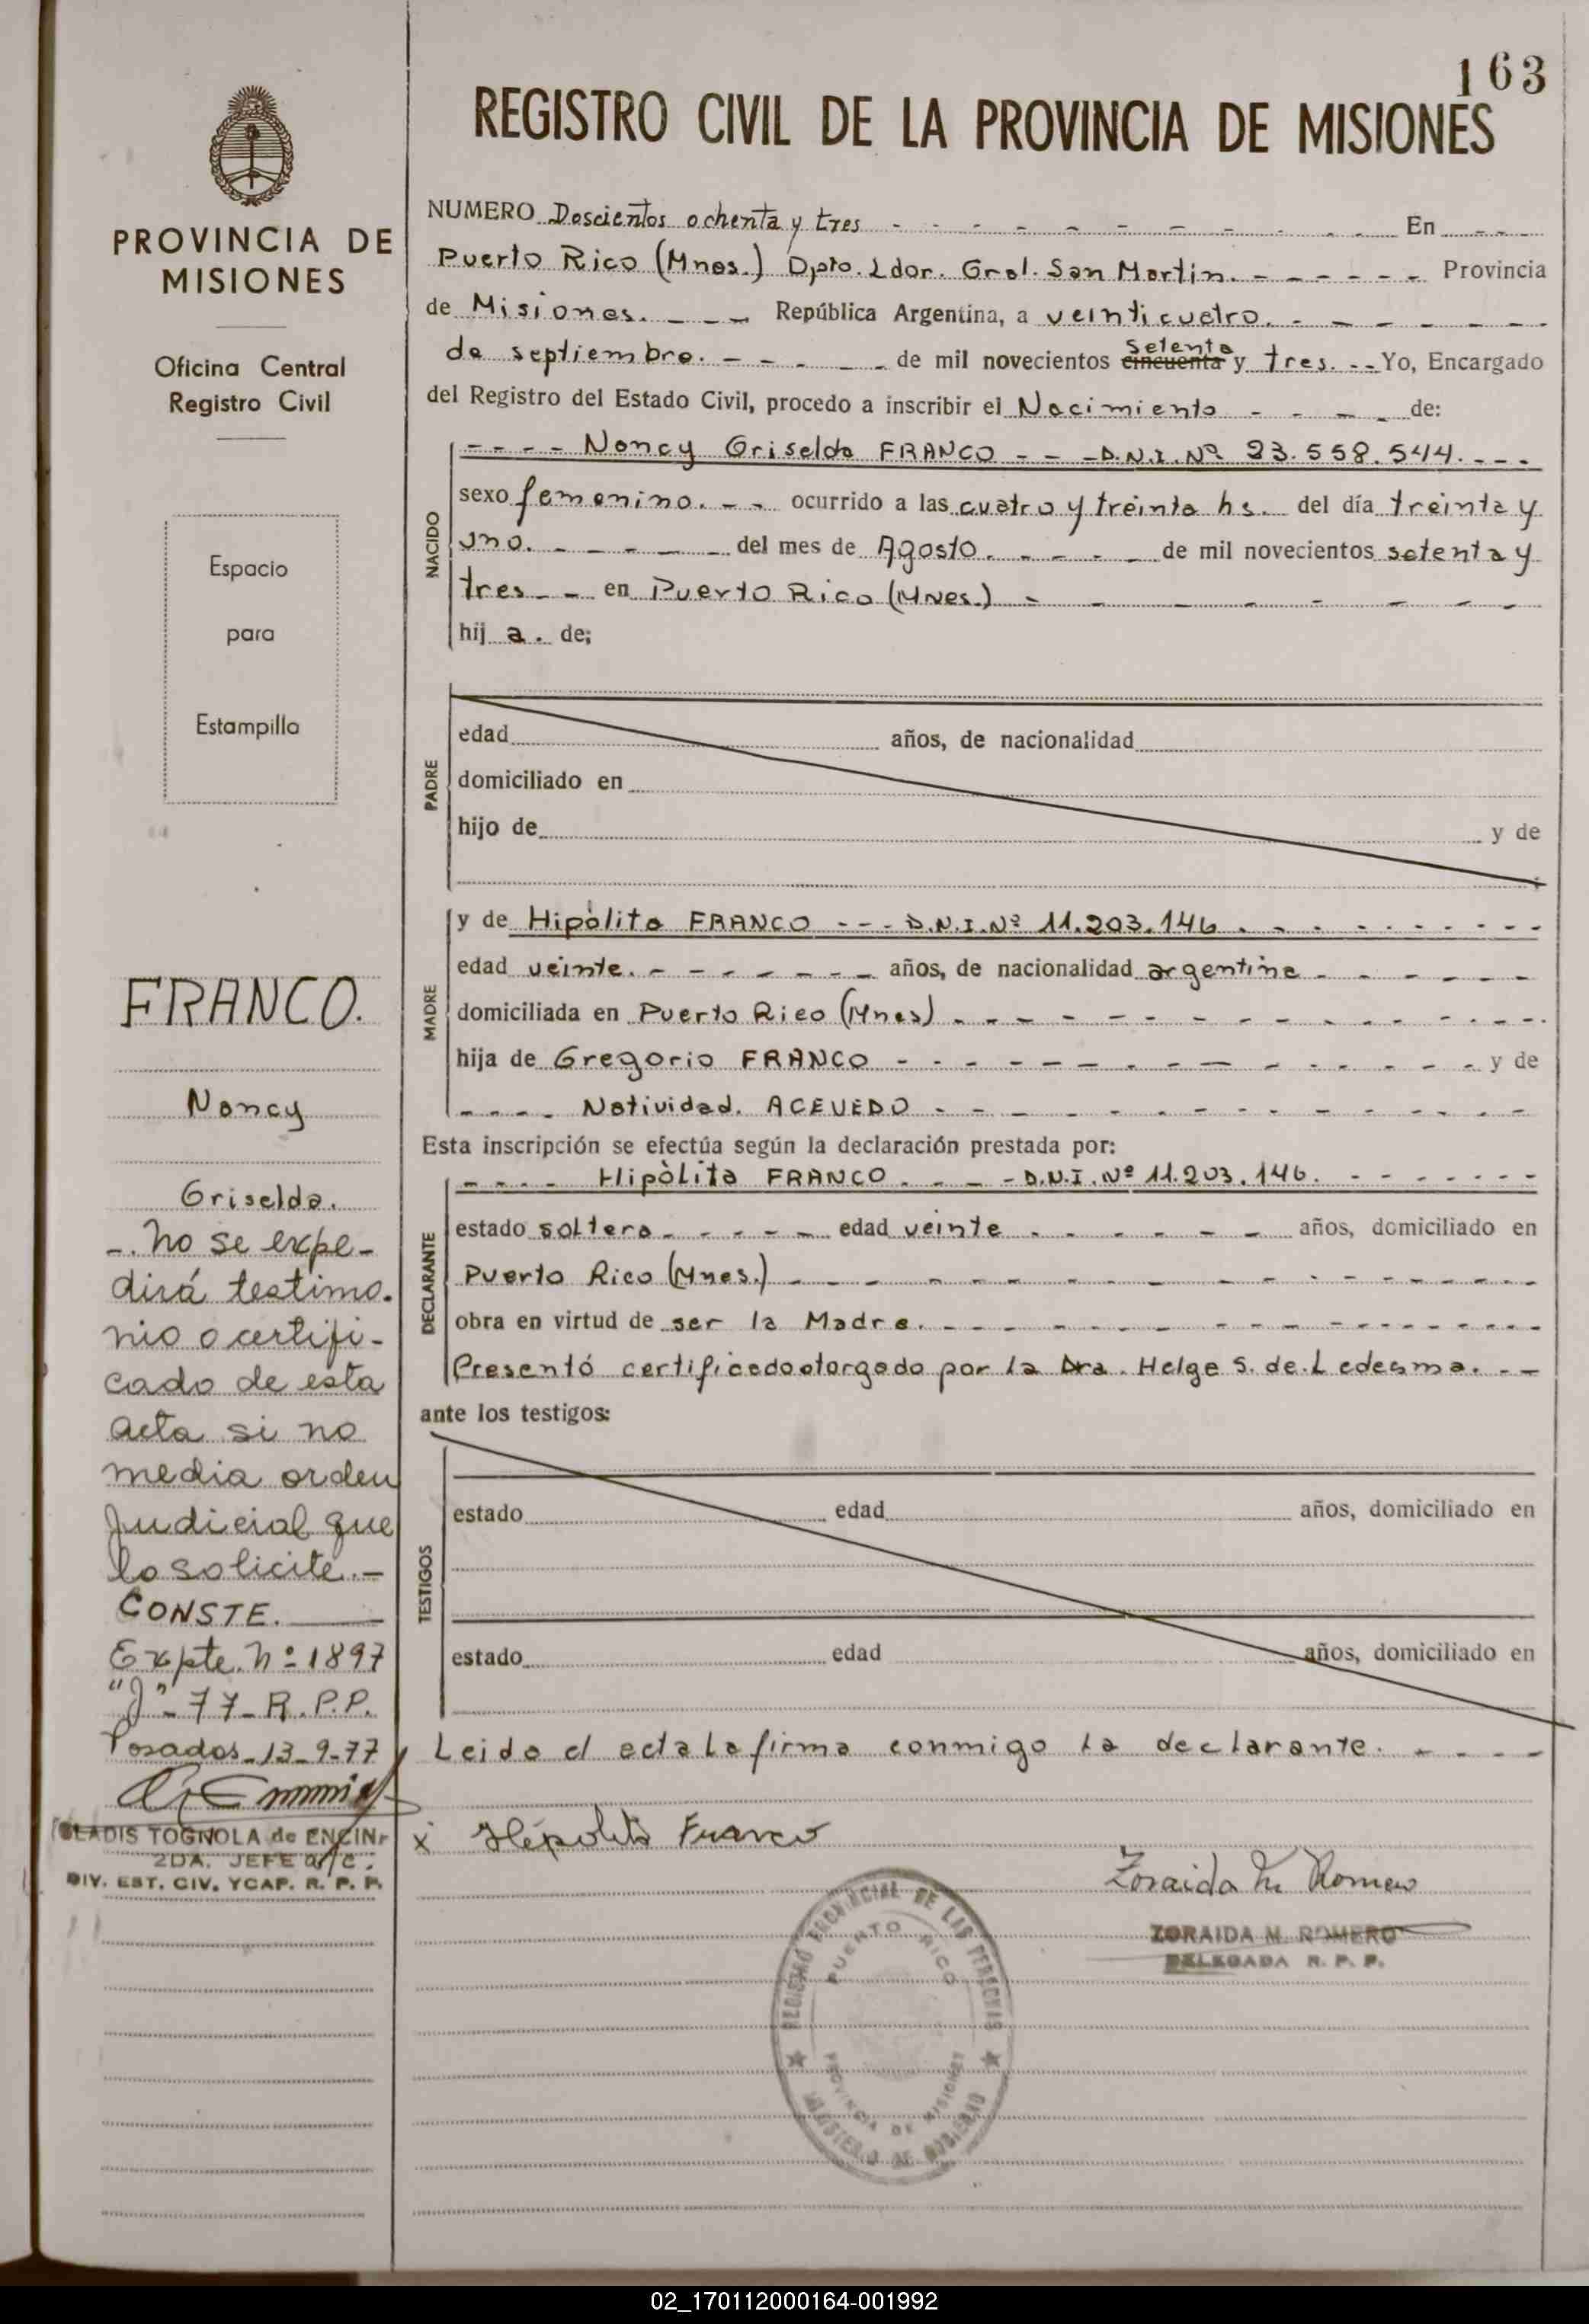 163
REGISTRO CIVIL DE LA PROVINCIA DE MISIONES
PROVINCIA DE
MISIONES
Oficina Central
Registro Civil
Espacio
para
Estampilla
FRANCO.
Nancy
Griselda.
-. No se expe-
dirá testimo-
nio o certifi-
cado de esta
acta si no
media orden
Judicial que
lo solicite.-
CONSTE.
Expte. Nº 1897
"J"- 77- R.P.P.
Posadas-13-9-77
GLADIS TOGNOLA de ENCINA
2DA. JEFE a/c.
DIV. EST. CIV. YCAP. R. P. P.
NUMERO Doscientos ochenta y tres - - - En - - -
Puerto Rico (Mnes.) Dpto. Ldor. Gral. San Martín. - - - Provincia
de Misiones. - - - República Argentina, a veinticuatro. - - -
de septiembre. - - - de mil novecientos cincuenta setenta y tres. - - Yo, Encargado
del Registro del Estado Civil, procedo a inscribir el Nacimiento - - - de:
NACIDO
- - - - Nancy Griselda FRANCO - - - D.N.I. Nº 23.558.544. - - -
sexo femenino. - - ocurrido a las cuatro y treinta hs. del día treinta y
uno. - - - del mes de Agosto. - - - de mil novecientos setenta y
tres - - en Puerto Rico (Mnes.) - - -
hij a. de;
PADRE
edad años, de nacionalidad
domiciliado en
hijo de y de
MADRE
y de Hipòlita FRANCO - - - D.N.I. Nº 11.203.146 - - -
edad veinte. - - - años, de nacionalidad argentina - - -
domiciliada en Puerto Rico (Mnes) - - -
hija de Gregorio FRANCO - - - y de
- - - - Natividad. ACEVEDO - - -
Esta inscripción se efectúa según la declaración prestada por:
DECLARANTE
- - - - Hipòlita FRANCO. - - - D.N.I. Nº 11.203.146. - - -
estado soltera - - - edad veinte - - - años, domiciliado en
Puerto Rico (Mnes.) - - -
obra en virtud de ser la Madre. - - -
Presentó certificado otorgado por la Dra. Helga S. de Ledesma. - -
ante los testigos:
TESTIGOS
estado edad años, domiciliado en
estado edad años, domiciliado en
Leida el acta la firma conmigo la declarante. - - -
x Hipolita Franco
Zoraida M. Romero
ZORAIDA M. ROMERO
DELEGADA R. P. P.
REGISTRO PROVINCIAL DE LAS PERSONAS
PUERTO RICO
PROVINCIA DE MISIONES
MINISTERIO DE GOBIERNO
02_170112000164-001992